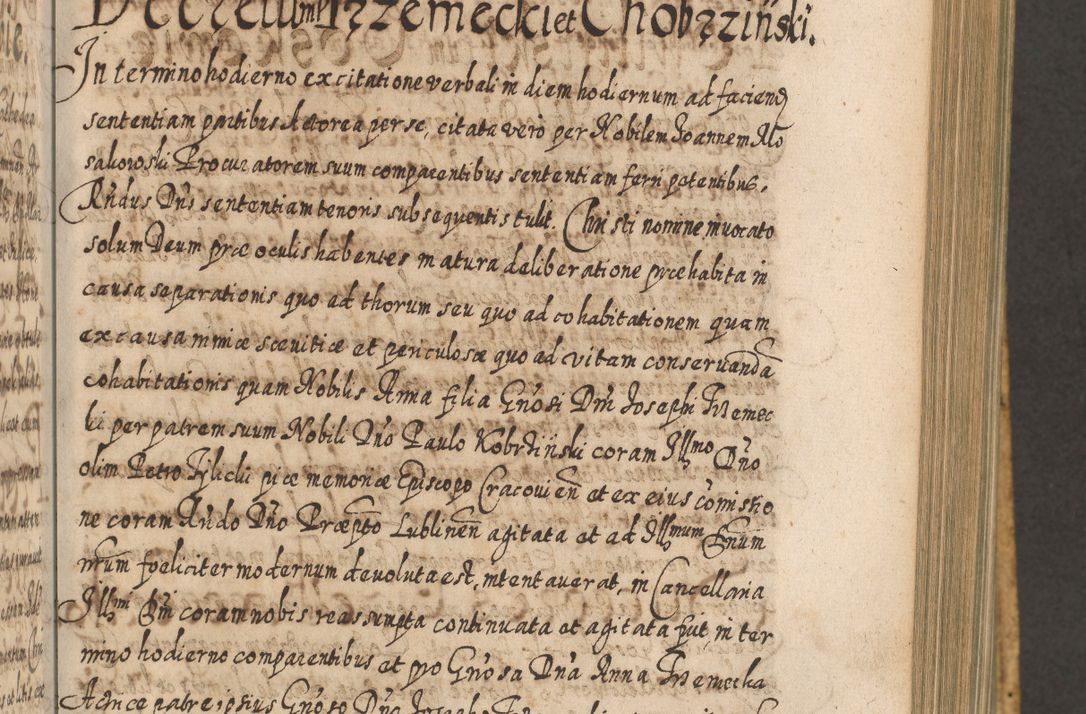 Decretum Trzemecki et Chobrzziński.
In termino hodierno ex citatione verbali in diem hodiernum ad faciend
sententiam partibus Actorea per se, citata vero per Nobilem Joannem Mo
sakowski Procuratorem suum comparentibus sententiam ferri petentibus.
Rndus Dns sententiam tenoris subsequentis tulit. Christi nomine invocato
solum Deum præ oculis habentes matura deliberatione præhabita in
causa separationis quo ad thorum seu quo ad cohabitationem quam
ex causa nimiæ scevitiæ et periculosæ quo ad vitam conservandā
cohabitationis quam Nobilis Anna filia Gnosi Dni Josephi Trzemec
ki per patrem suum Nobili Dno Paulo Kobrziński coram Illmo Dno
olim Petro Tylicki piæ memoriæ Episcopo Cracovien et ex eius comissio
ne coram Rndo Dno Præpto Lublinen agitata et ad Illmum Dnum
nrum fæliciter modernum devoluta est, intentaverat, in Cancellaria
Illmi Dni coram nobis reassumpta continuata et agitata fuit in ter
mino hodierno comparentibus et pro Gnosa Dna Anna Trzemecka
Actrice patre ipsius Gnoso Dno Josepho